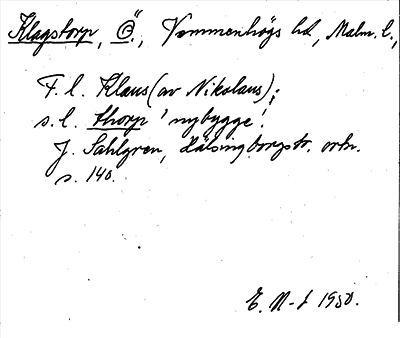 Klagstorp, Ö., Vemmenhögs hd, Malm. l.,
F. l. Klaus (av Nikolaus);
s. l. thorp 'nybygge'.
J. Sahlgren, Hälsingborgstr. ortn.
s. 140.
E. N-f 1930.